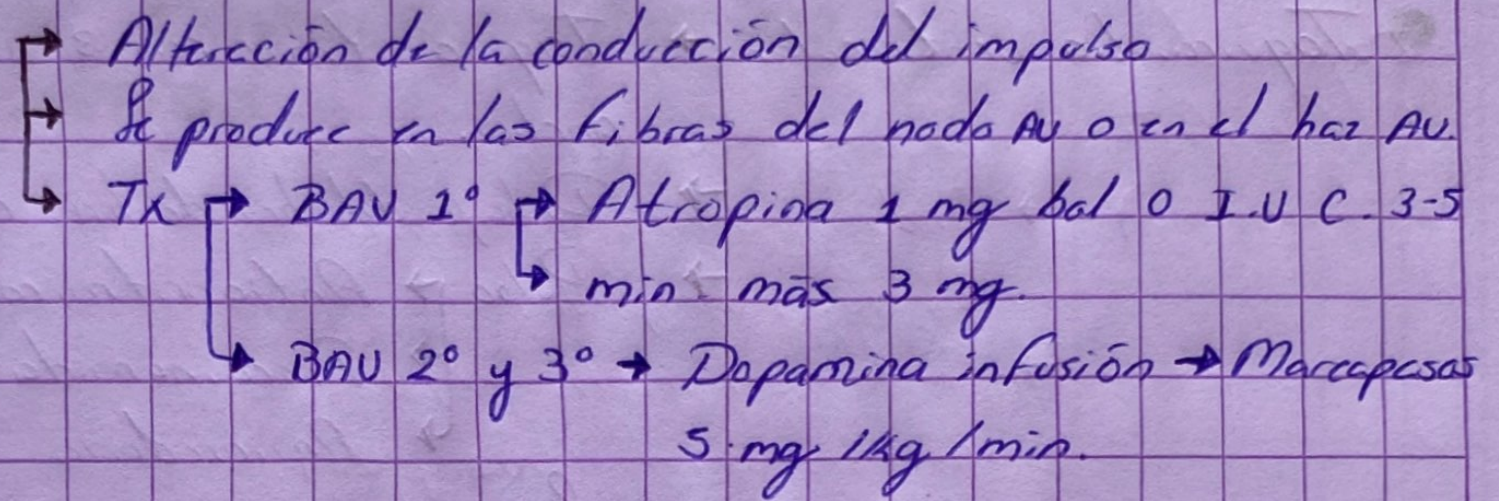 → Alteración de la conducción del impulso
→ Se produce en las fibras del nodo AV o en el haz AV.
→ Tx → BAV 1° → Atropina 1 mg bol o I.V C. 3-5
→ min - máx 3 mg.
→ BAV 2° y 3° → Dopamina infusión → Marcapasos
5 mg /kg /min.